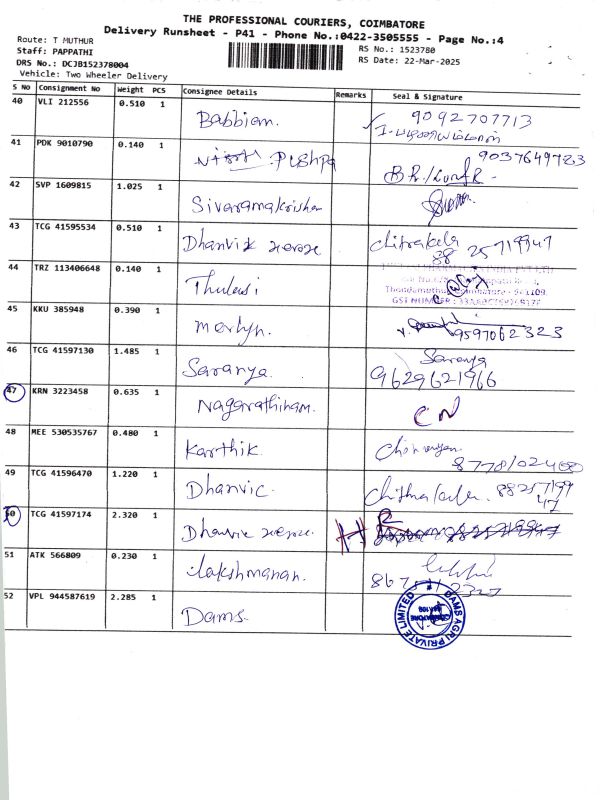 THE PROFESSIONAL COURIERS, COIMBATORE
Delivery Runsheet - P41 - Phone No.:0422-3505555 - Page No.:4
Route: T MUTHUR
Staff: PAPPATHI
RS No.: 1523780
DRS No.: DCJB152378004
RS Date: 22-Mar-2025
Vehicle: Two Wheeler Delivery
S No Consignment No Weight PCS Consignee Details Remarks Seal & Signature
40 VLI 212556 0.510 1 Babbian. 9092707713
41 PDK 9010790 0.140 1 Pushpa 9037649723
42 SVP 1609815 1.025 1 Sivaramakrishan
43 TCG 41595534 0.510 1 Dhanvik xerox Chitrakala
88 25719947
44 TRZ 113406648 0.140 1 Thulasi
45 KKU 385948 0.390 1 Merlyn. 9597062323
46 TCG 41597130 1.485 1 Saranya. Saranya
9629621966
47 KRN 3223458 0.635 1 Nagarathinam. CN
48 MEE 530535767 0.480 1 Karthik
49 TCG 41596470 1.220 1 Dhanvic. 88257199
47
50 TCG 41597174 2.320 1 Dhanvic xerox.
51 ATK 566809 0.230 1 Lakshmanan.
52 VPL 944587619 2.285 1 Dams. DAMS AGRI PRIVATE LIMITED